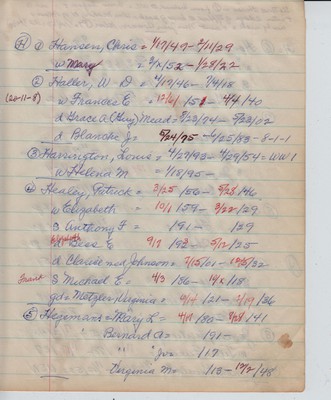 (H) ① Hansen, Chris = 1/17/47 - 2/11/29
w Mary = 3/x/52 - 1/28/22
② Haller, W - D = 4/19/46 - 7/4/18
(20-11-8) w Frances E = 12/21/51 - 4/4/40
d Grace A (Guy) Mead = 8/22/74 - 5/23/02
d Blanche J = 5/24/75 - 4/25/83 - 8-1-1
③ Harrington, Louis = 4/29/93 - 4/29/54 = WW I
w Helena M = 1/18/95 -
④ Healey, Patrick = 3/25/56 - 5/28/46
w Elizabeth = 10/1/59 - 3/22/29
s Anthony F = /91 - /29
Bess E 9/9/93 - 5/2/25
d Clarise ned Johnson = 7/15/01 - 10/5/32
s Michael E = 4/3/86 - 14/x/18
gd = Metzler, Virginia = /21 - 2/19/36
⑤ Hegeman = Mary L = /80 - /41
Bernard A = /91 -
" " Jr = /17
Virginia M = /18 - 12/2/48